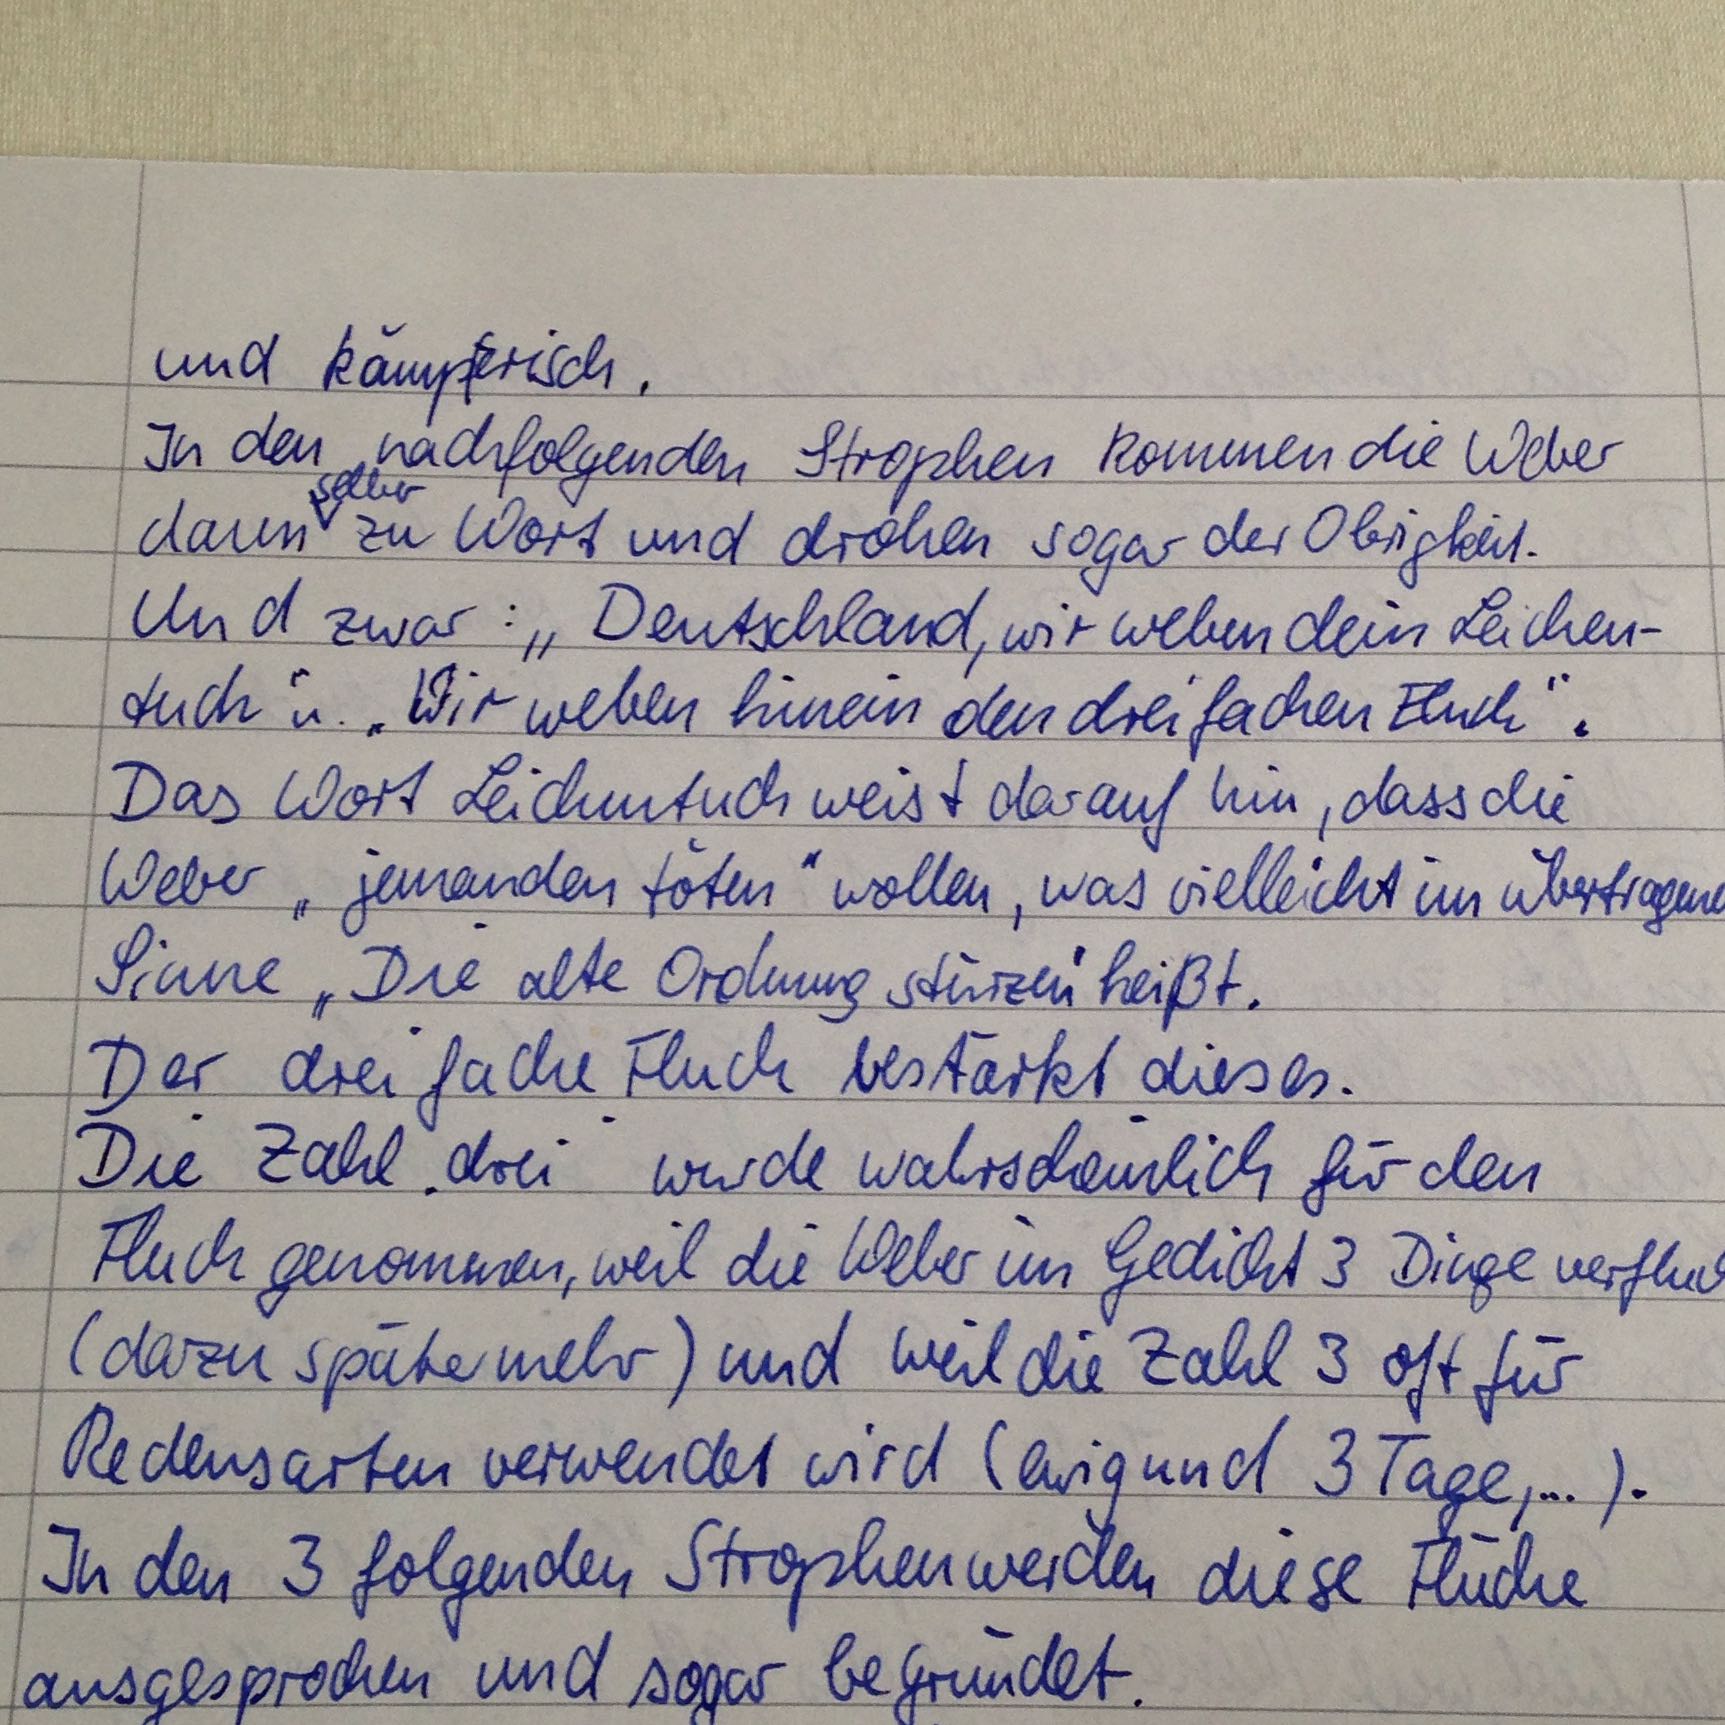 und kämpferisch.
In den nachfolgenden Strophen kommen die Weber
dann selber zu Wort und drohen sogar der Obrigkeit.
Und zwar: „Deutschland, wir weben dein Leichen-
tuch" u. „Wir weben hinein den dreifachen Fluch".
Das Wort Leichentuch weist darauf hin, dass die
Weber „jemanden töten" wollen, was vielleicht im übertragene
Sinne „Die alte Ordnung stürzen" heißt.
Der dreifache Fluch bestärkt dieses.
Die Zahl „drei" wurde wahrscheinlich für den
Fluch genommen, weil die Weber im Gedicht 3 Dinge verfluc
(dazu späte mehr) und weil die Zahl 3 oft für
Redensarten verwendet wird (ewig und 3 Tage,...).
In den 3 folgenden Strophen werden diese Flüche
ausgesprochen und sogar begründet.